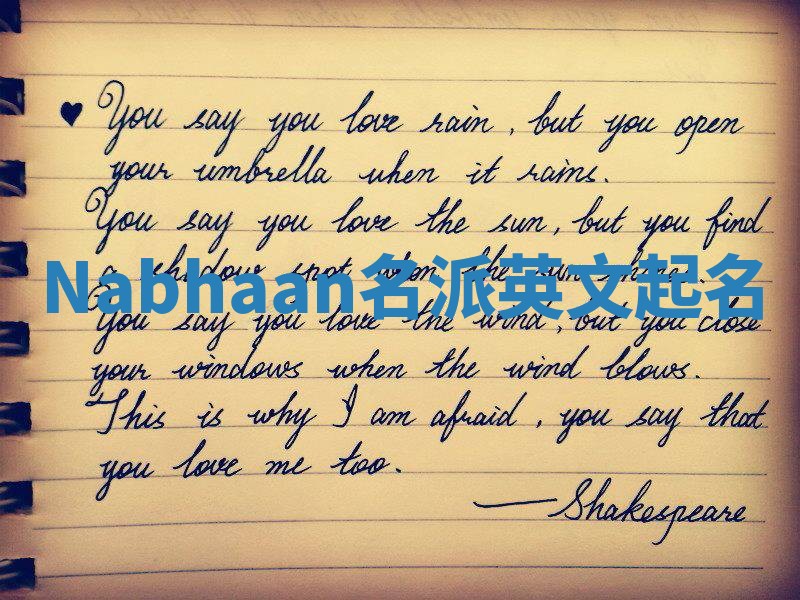 ♥ You say you love rain, but you open
your umbrella when it rains.
You say you love the sun, but you find
a shadow spot when the sun shines.
Nabhaan名派英文起名
You say you love the wind, but you close
your windows when the wind blows.
This is why I am afraid, you say that
you love me too.
—Shakespeare